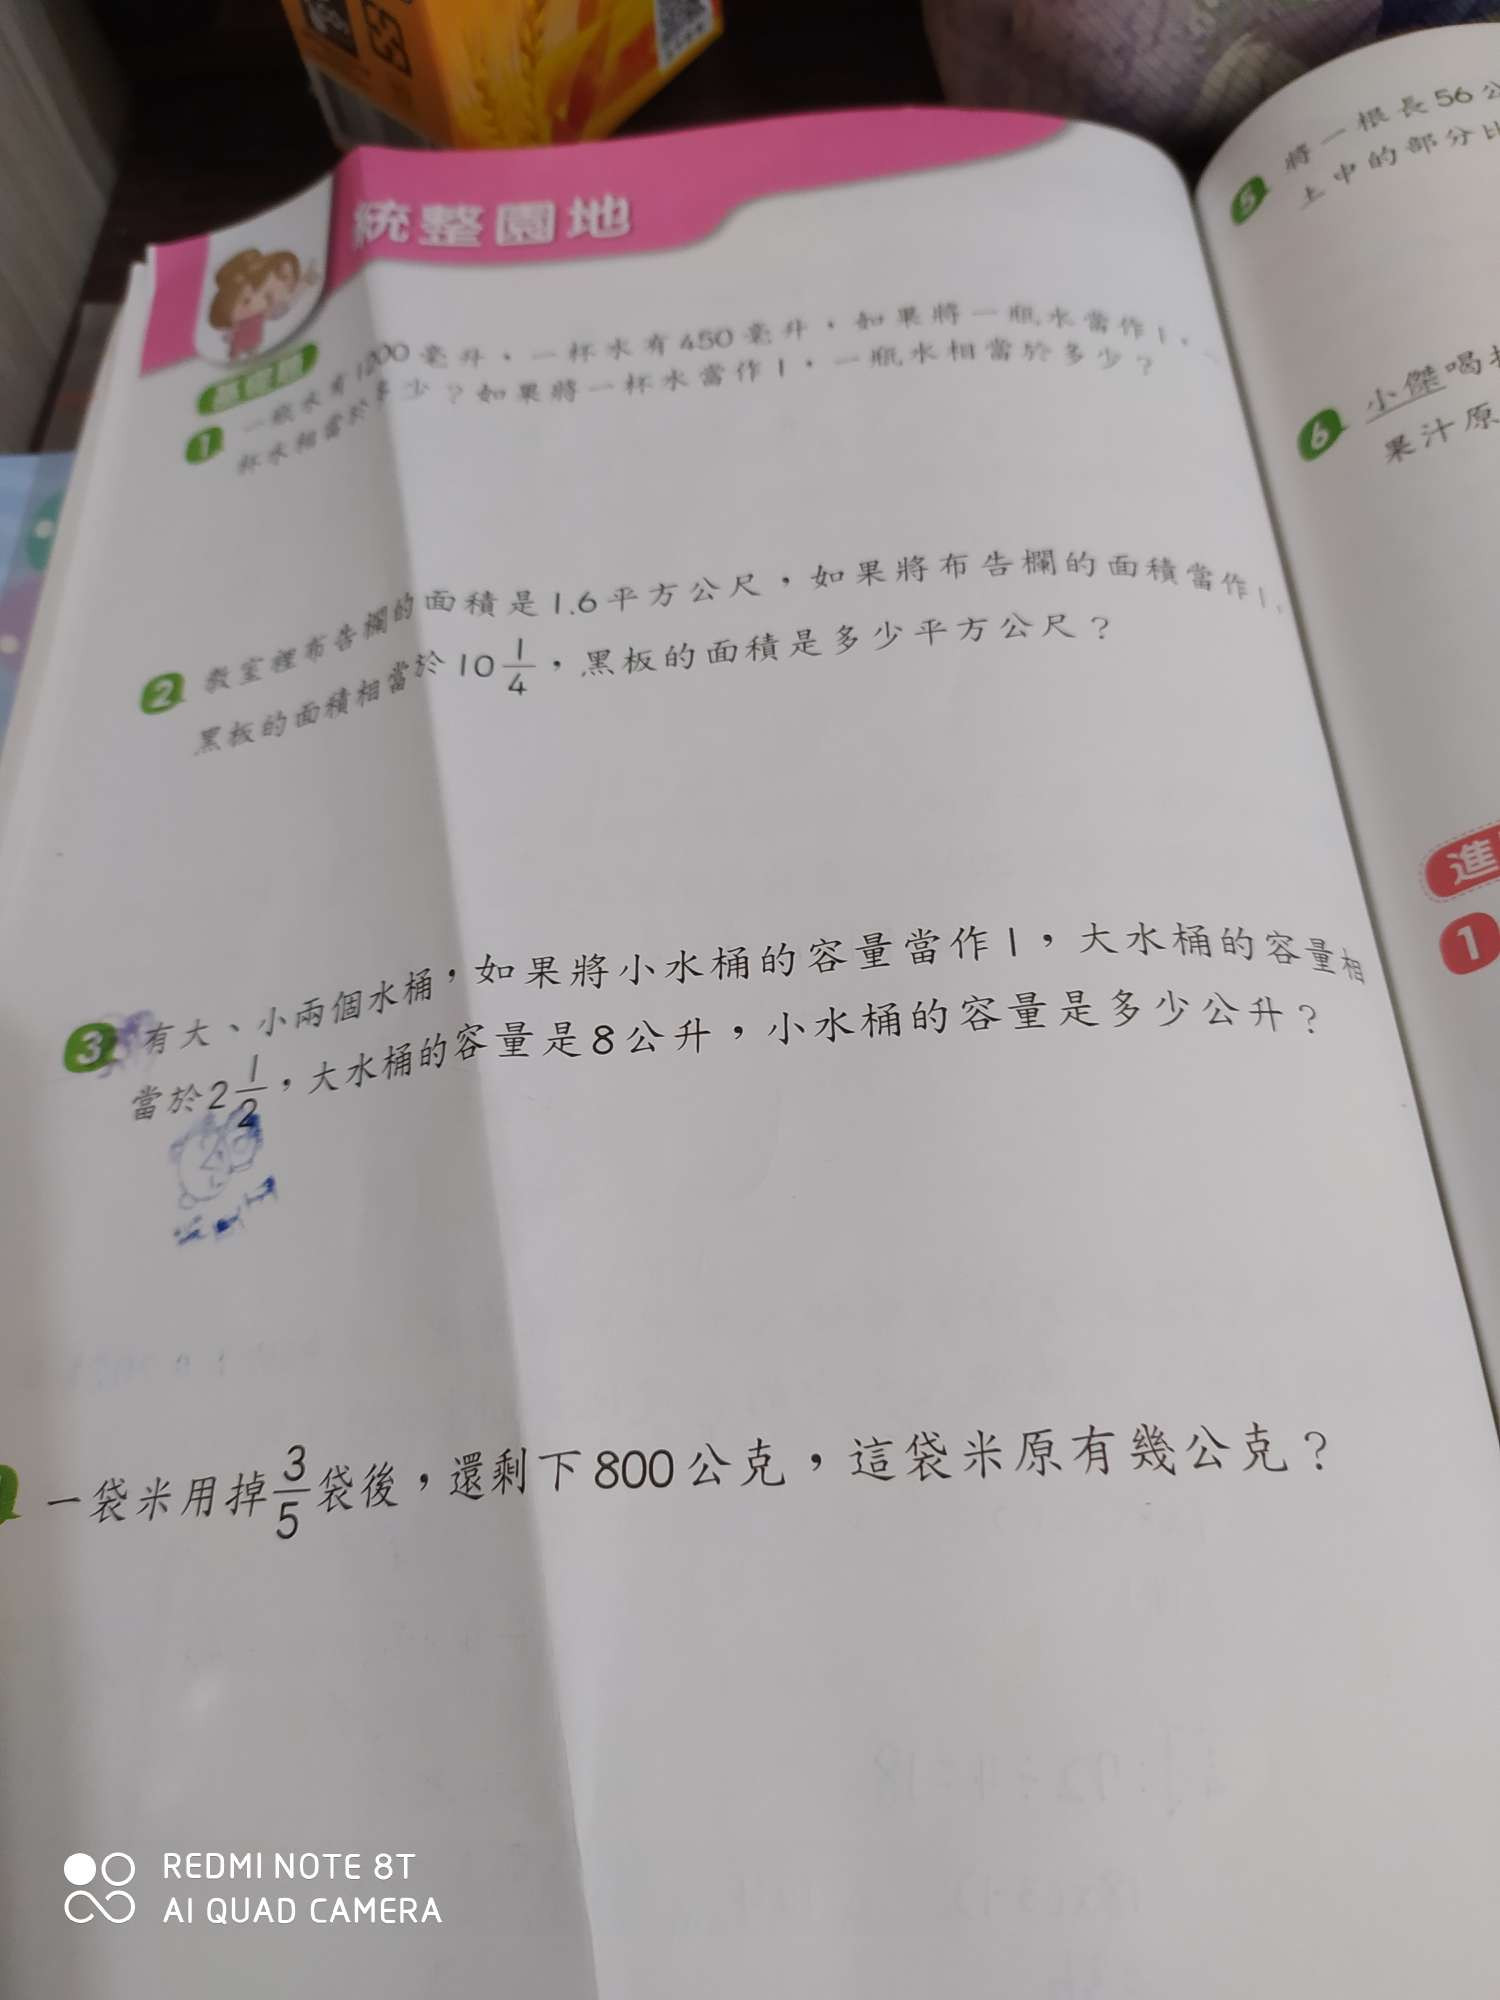 統整園地
基礎題
1 一瓶水有1200毫升,一杯水有450毫升,如果將一瓶水當作1,一
杯水相當於多少?如果將一杯水當作1,一瓶水相當於多少?
2 教室裡布告欄的面積是1.6平方公尺,如果將布告欄的面積當作1,
黑板的面積相當於10 1/4,黑板的面積是多少平方公尺?
3 有大、小兩個水桶,如果將小水桶的容量當作1,大水桶的容量相
當於2 1/2,大水桶的容量是8公升,小水桶的容量是多少公升?
一袋米用掉3/5袋後,還剩下800公克,這袋米原有幾公克?
5 將一根長56公
上中的部分比
6 小傑喝掉
果汁原
進
1
REDMI NOTE 8T
AI QUAD CAMERA